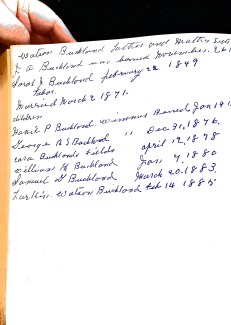 Watson Buckland Father and Mother
Buckland was borned November. 26
Sarah J Buckland february 22 1849
Married March 2 1871.
children
P Buckland Borned Jan 19
George B S Buckland " Dec 31, 1876.
cara Bucklands fields april 12, 1878
William H Buckland Jan 7. 1880
Samuel G Buckland March 20. 1883.
Larkin Watson Buckland Feb 14 1885